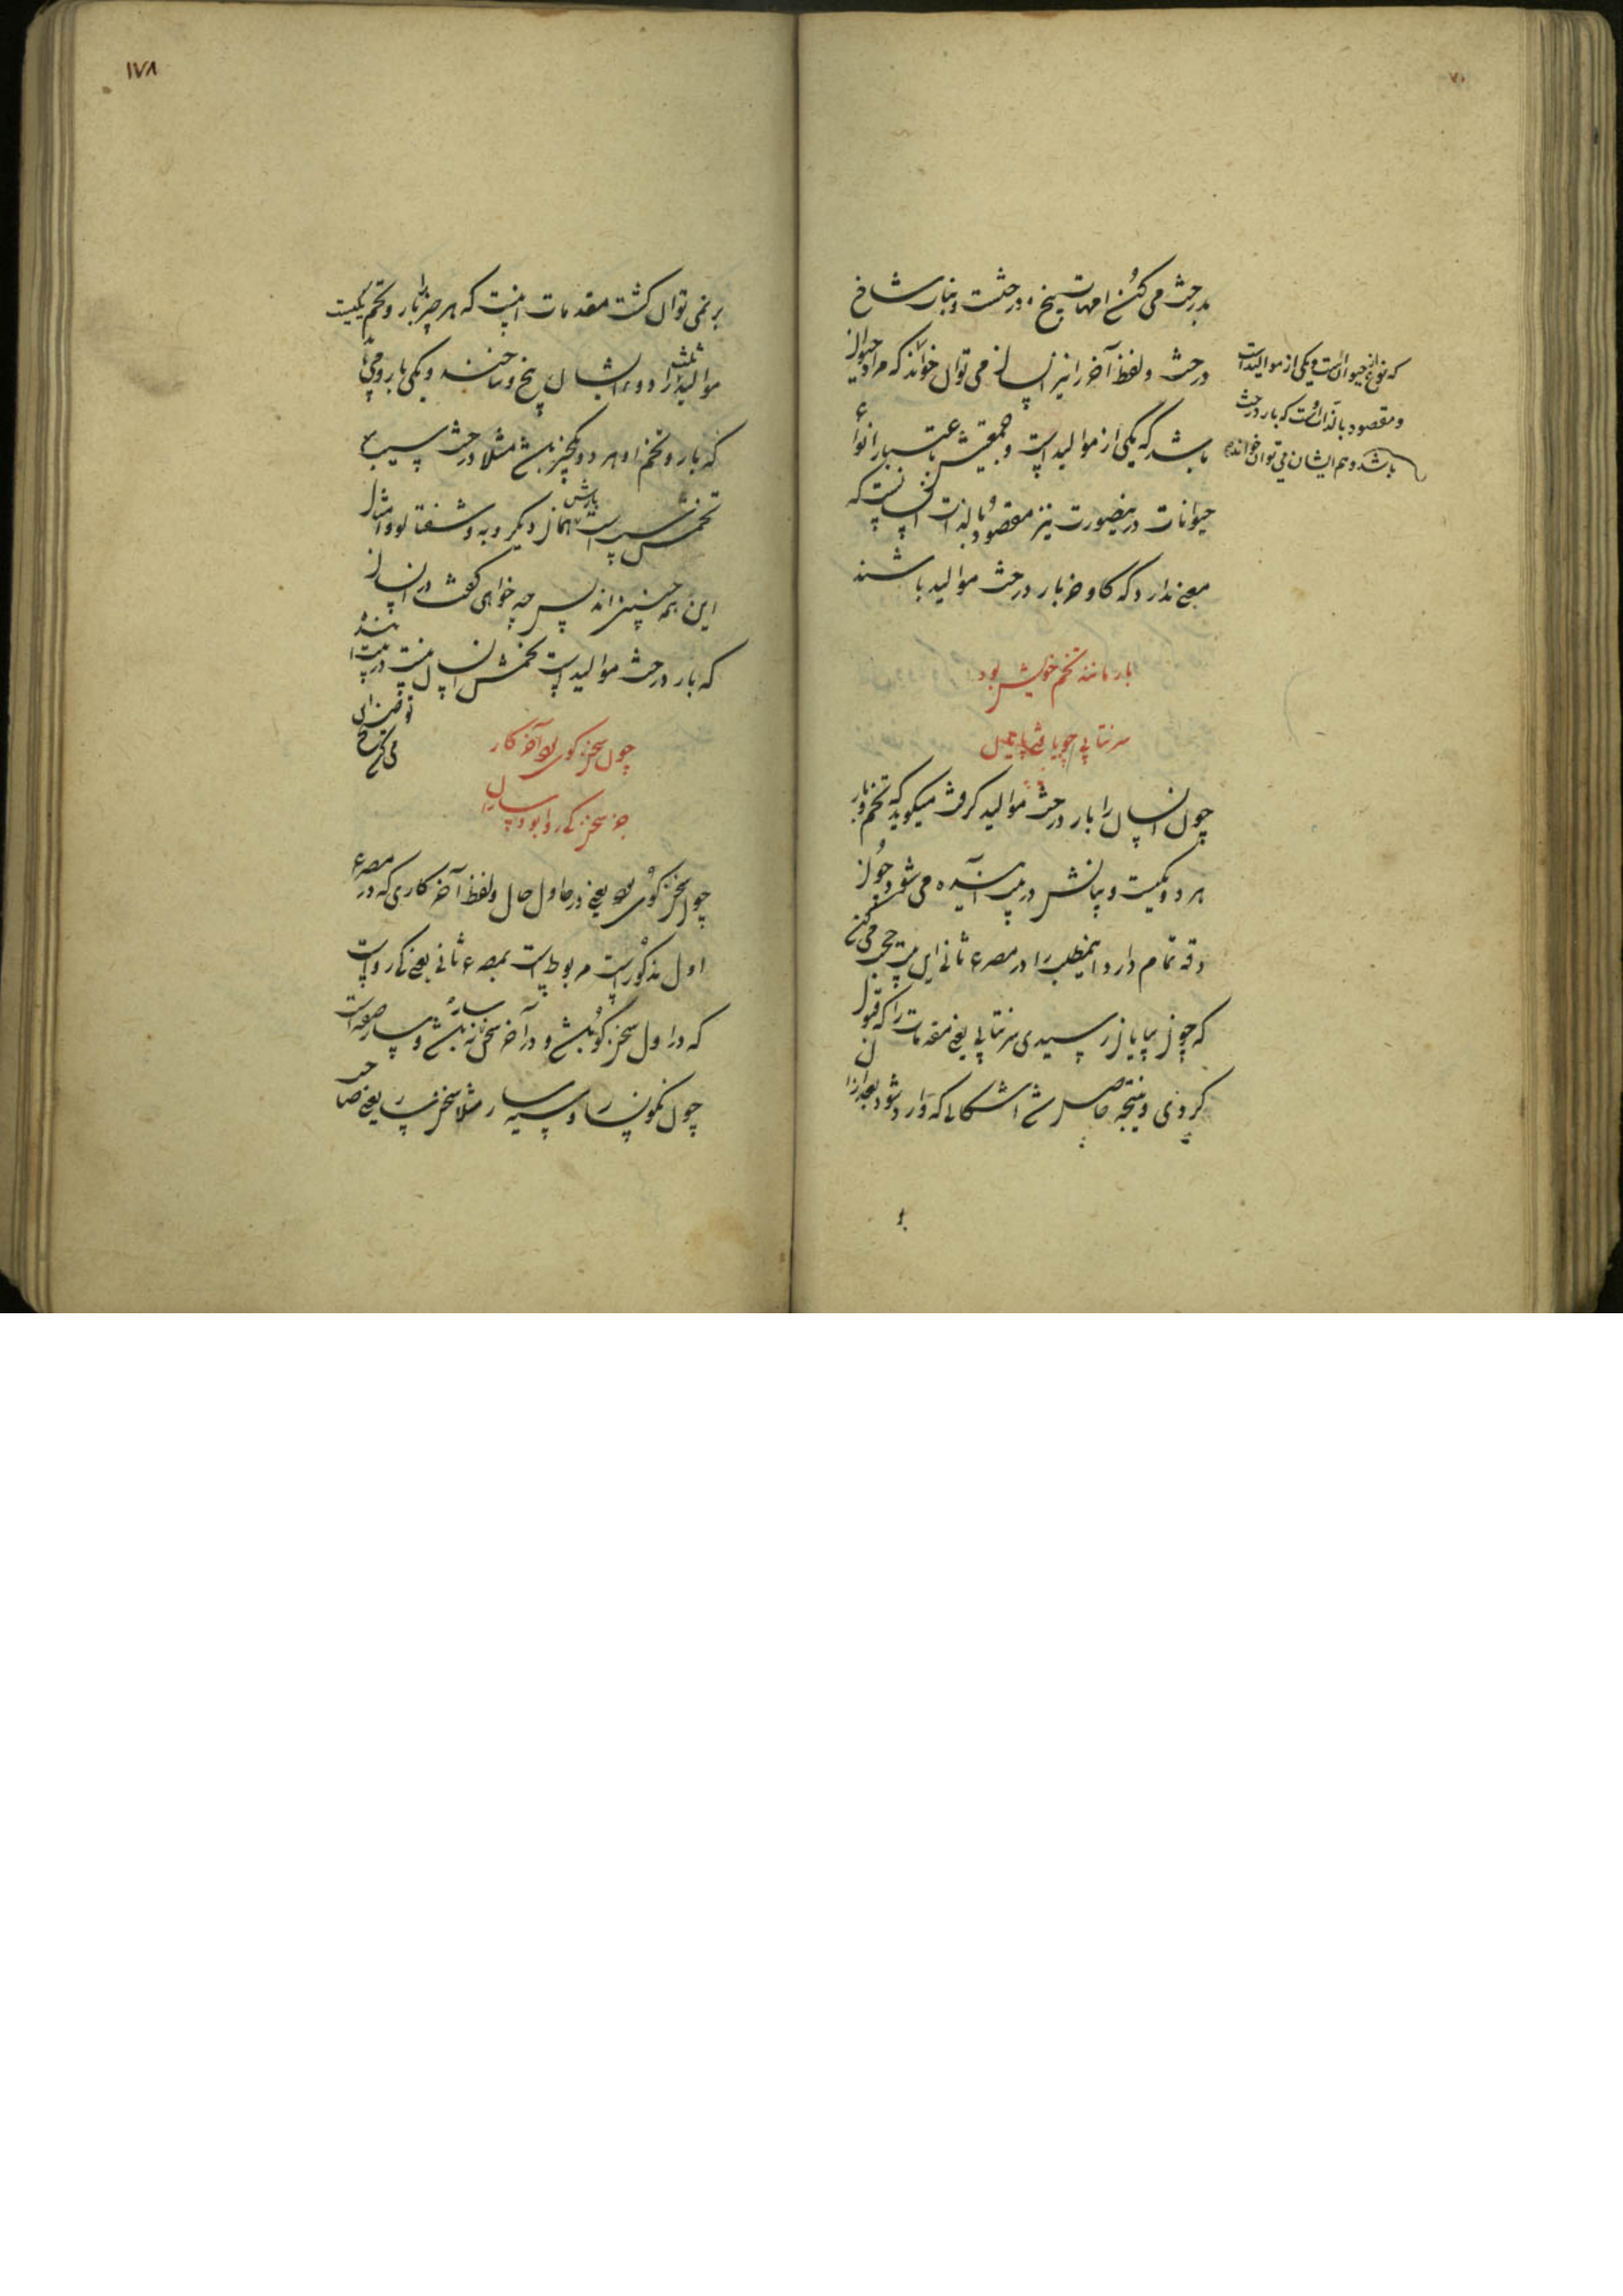 بدرخت می کند امهات بیخ درختست و نبات شاخ
درخت و لفظ آخر را نیز انسان می توان خواند که مراد حیوان
باشد که یکی از موالید است و جمعیتش باعتبار انواع
حیوانات درینصورت نیز مقصود بالذات انسانست که
معنی ندارد که گاو و خر بار درخت موالید باشند
که نوع از حیوانست و یکی از موالید است
و مقصود بالذات اوست که بار درخت
باشد و هم ایشان می توان خواند
بار مانند تخم خویش بود
سر نتابی چو یافتی پایان
چون انسان را بار درخت موالید گرفت میگوید که تخم و بار
هر دو یکیست و بیانش در بیت آینده می شود چون
دقه تمام دارد اینمطلب را در مصرع ثانی این بیت می کند
که چون بپایان رسیدی سر نتابی یعنی مقدمات را که قبول
کردی و نتیجه حاصل شد اشکالی که وارد شود بعد از آن
۱۷۸
بر نمی توان گشت مقدمات اینست که هر چیز را بار و تخم یکیست
موالید ثلثه را دو ایشان بیخ و شاخند و یکی بار
که بار و تخم او هر دو یکچیز باشد مثلا درخت سیب
تخمش سیب است بارش همان دیگر و به و شفتالو و امثال
این همه چنین اند پس چه خواهی گفت در انسان
که بار درخت موالید است تخمش انسان نیست در بیت آینده
توضیح این
می کند
چون سخن گوی بود آخر کار
جز سخن کی روا بود
چون سخن گوی بود یعنی در اول حال و لفظ آخر کاری که در مصرع
اول مذکور است مربوط است بمصرع ثانی یعنی کی رواست
که در اول سخن گو باشد و در آخر سخن نباشد و
چون نمکسار و سیه سار مثلا سخن یعنی